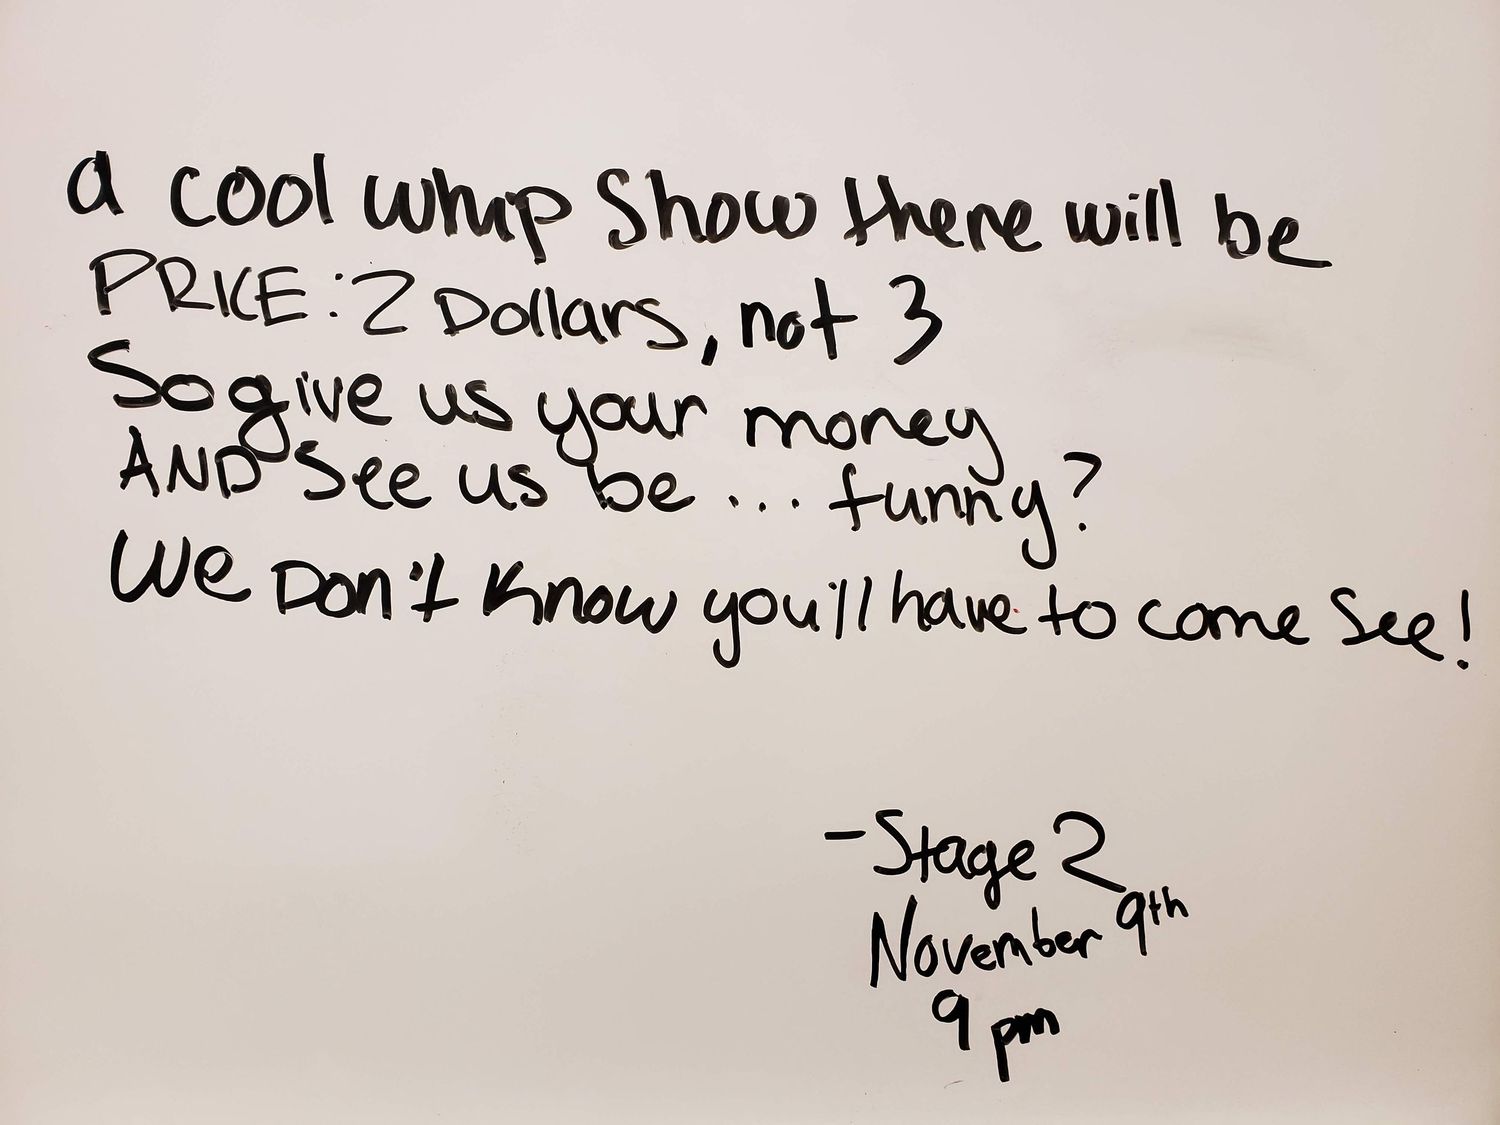 a cool whip Show there will be
PRICE: 2 Dollars, not 3
So give us your money
AND See us be ... funny?
We Don't Know you'll have to come See!
- Stage 2
November 9th
9 pm